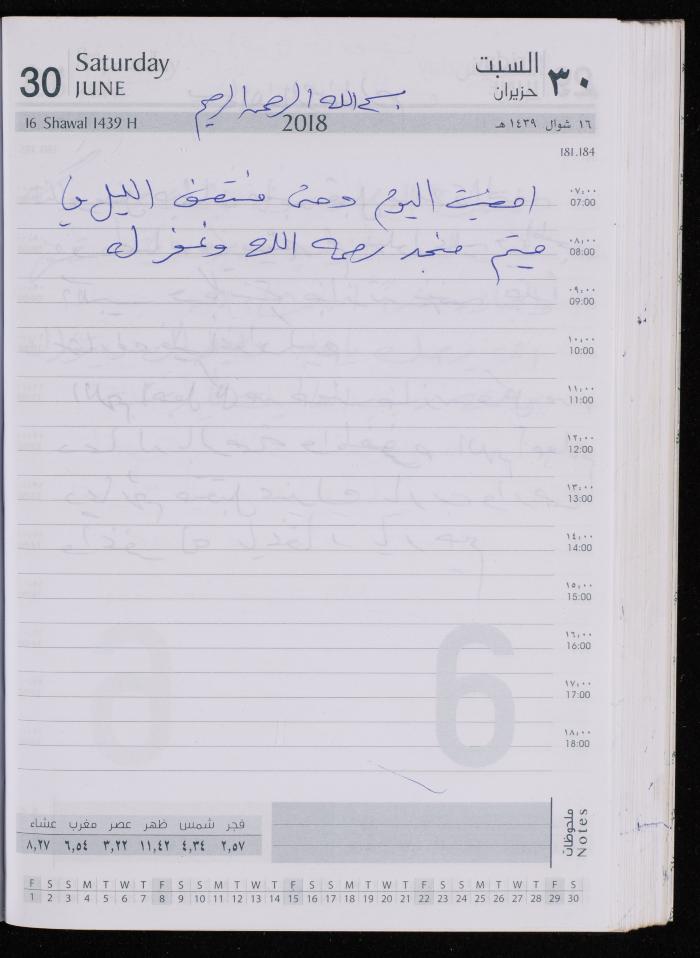 30 Saturday السبت ٣٠
JUNE حزيران
بسم الله الرحمن الرحيم
16 Shawal 1439 H 2018 ١٦ شوال ١٤٣٩ هـ
181.184
امضيت اليوم وحتى منتصف الليل في
٠٧:٠٠
07:00
ميتم منجد رحمه الله وغفر له
٠٨:٠٠
08:00
٠٩:٠٠
09:00
١٠:٠٠
10:00
١١:٠٠
11:00
١٢:٠٠
12:00
١٣:٠٠
13:00
١٤:٠٠
14:00
١٥:٠٠
15:00
١٦:٠٠
16:00
6
١٧:٠٠
17:00
١٨:٠٠
18:00
فجر شمس ظهر عصر مغرب عشاء
٢,٥٧ ٤,٣٤ ١١,٤٢ ٣,٢٢ ٦,٥٤ ٨,٢٧
ملحوظات
Notes
F S S M T W T F S S M T W T F S S M T W T F S S M T W T F S
1 2 3 4 5 6 7 8 9 10 11 12 13 14 15 16 17 18 19 20 21 22 23 24 25 26 27 28 29 30